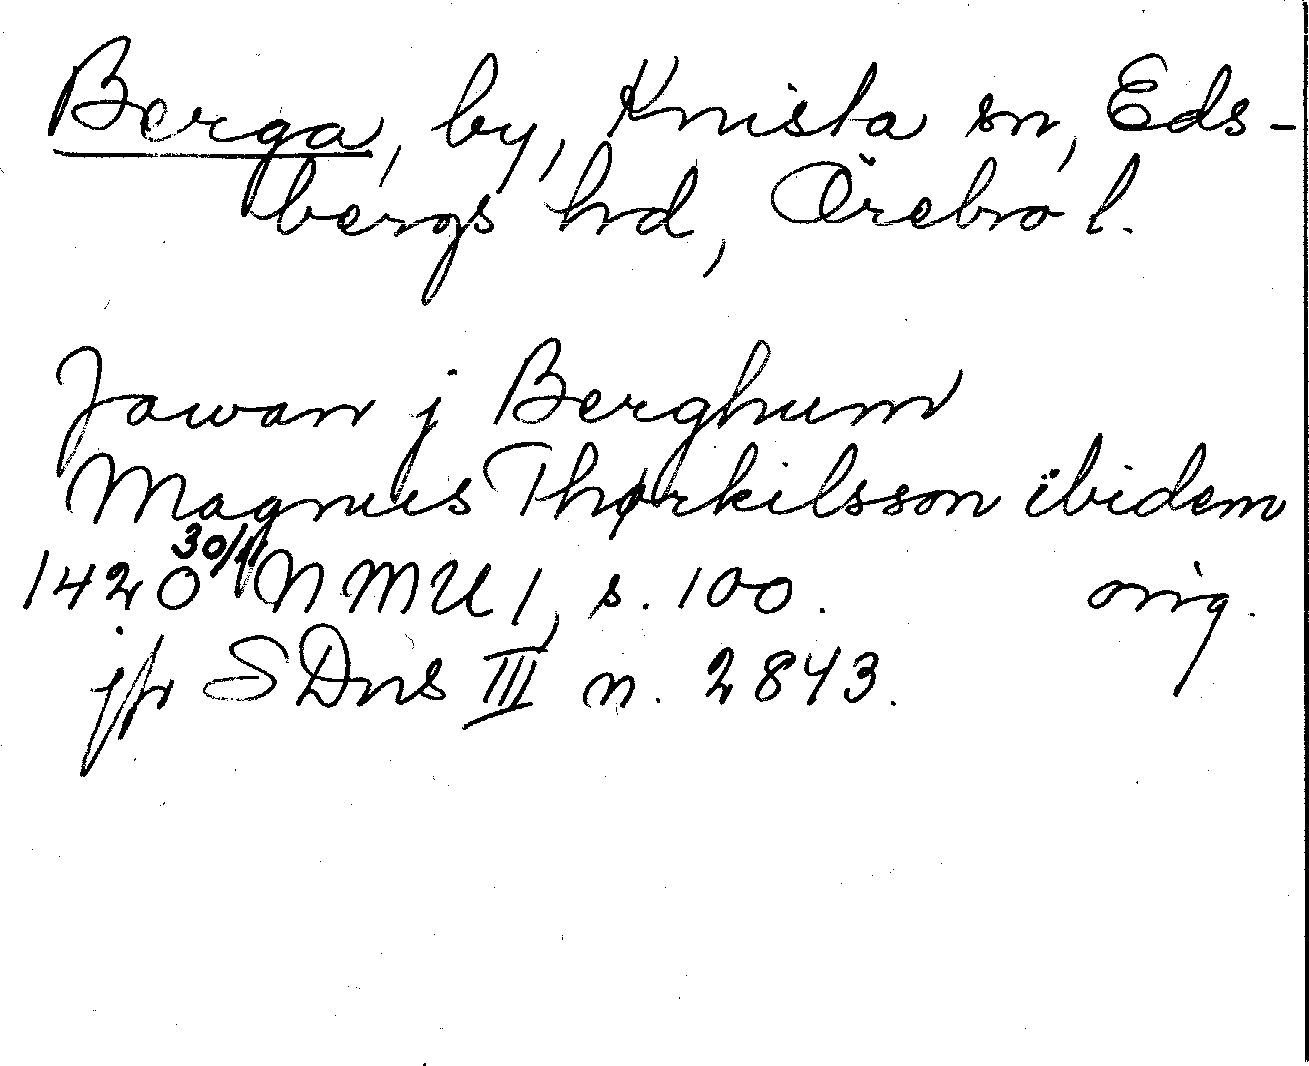 Berga, by, Knista sn, Eds-
bergs hrd, Örebro l.
Jowan j Berghum
Magnus Thørkilsson ibidem
1420 30/11 NMU 1, s. 100. orig.
jfr SDns III n. 2843.